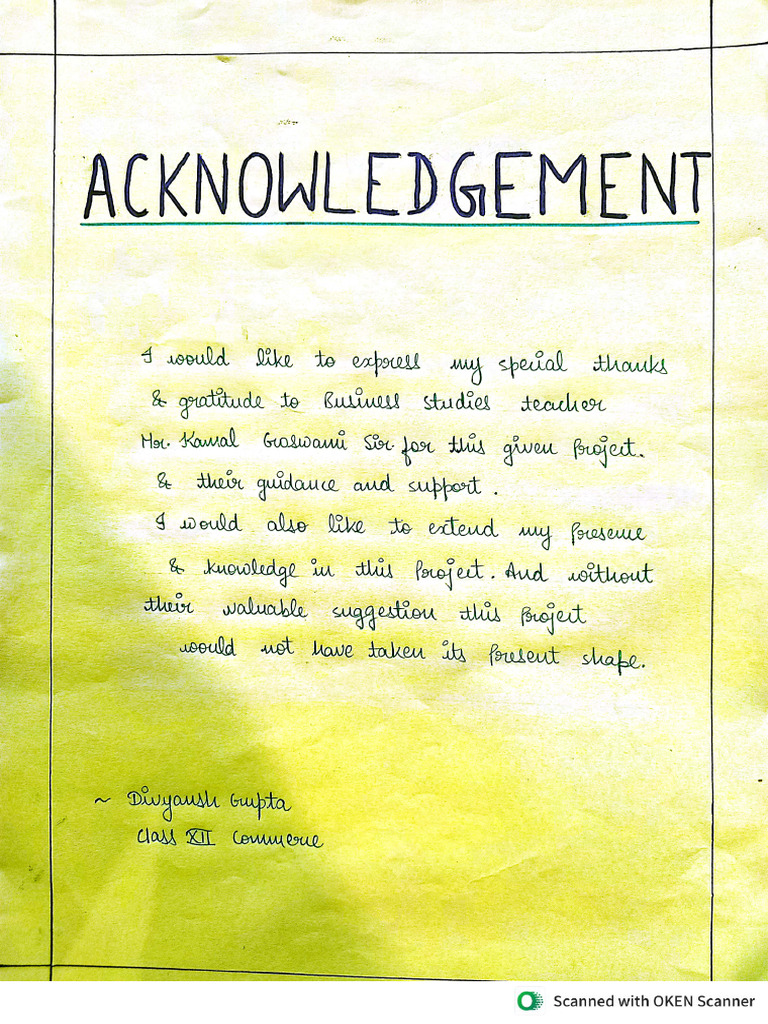 ACKNOWLEDGEMENT
I would like to express my special thanks
& gratitude to Business studies teacher
Mr. Kamal Goswami Sir for this given project.
& their guidance and support.
I would also like to extend my presence
& knowledge in this project. And without
their valuable suggestion this project
would not have taken its present shape.
~ Divyansh Gupta
Class XII Commerce
Scanned with OKEN Scanner